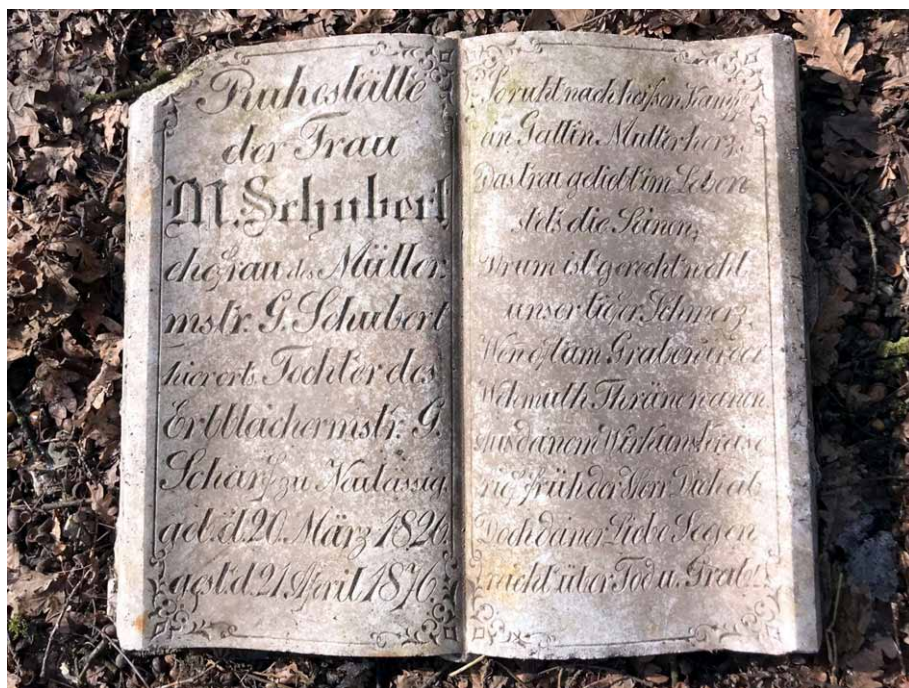 Ruhestätte
der Frau
M. Schubert
ehefrau des Müller
mstr. G. Schubert
hierorts. Tochter des
Erbblachermstr. G.
Scharf zu Neulässig
geb. d. 20. März 1826.
gest. d. 21. April 1876.
So ruht nach heißen Kampf
an Gattin Mutterherz,
Das treu geliebt im Leben
stets die Seinen,
Drum ist gerecht wohl
unser tiefer Schmerz,
Wen oft am Grabe wir der
Wehmuth Thränen weinen
Aus deinem Wirkunskreise
rief früh der Herr Dich ab
Doch deiner Liebe Seegen
reicht über Tod u. Grab!